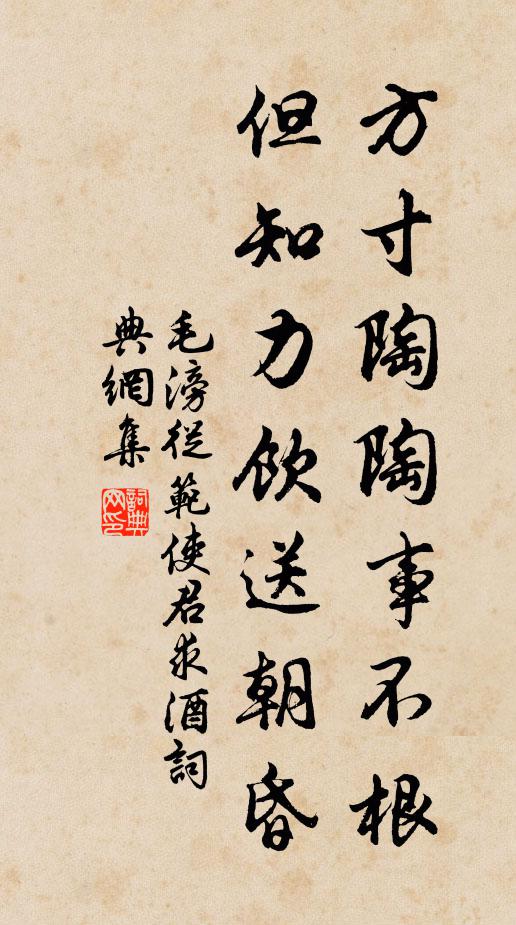 方寸陶陶事不根
但知力飲送朝昏
毛滂從範使君求酒詞
典網集
詞典
网印